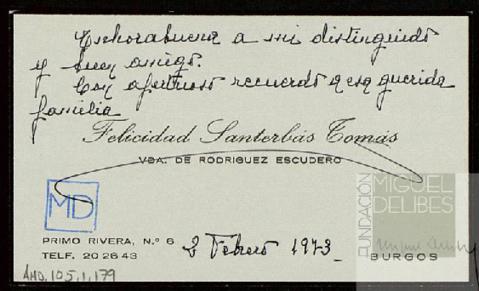 Enhorabuena a mi distinguido
y buen amigo.
Con afectuoso recuerdo a esa querida
familia
Felicidad Santerbás Tomás
VDA. DE RODRIGUEZ ESCUDERO
MD
FUNDACIÓN
MIGUEL
DELIBES
PRIMO RIVERA, N.º 6
TELF. 20 26 43
2 Febrero 1973
BURGOS
AMD, 105, 1, 179